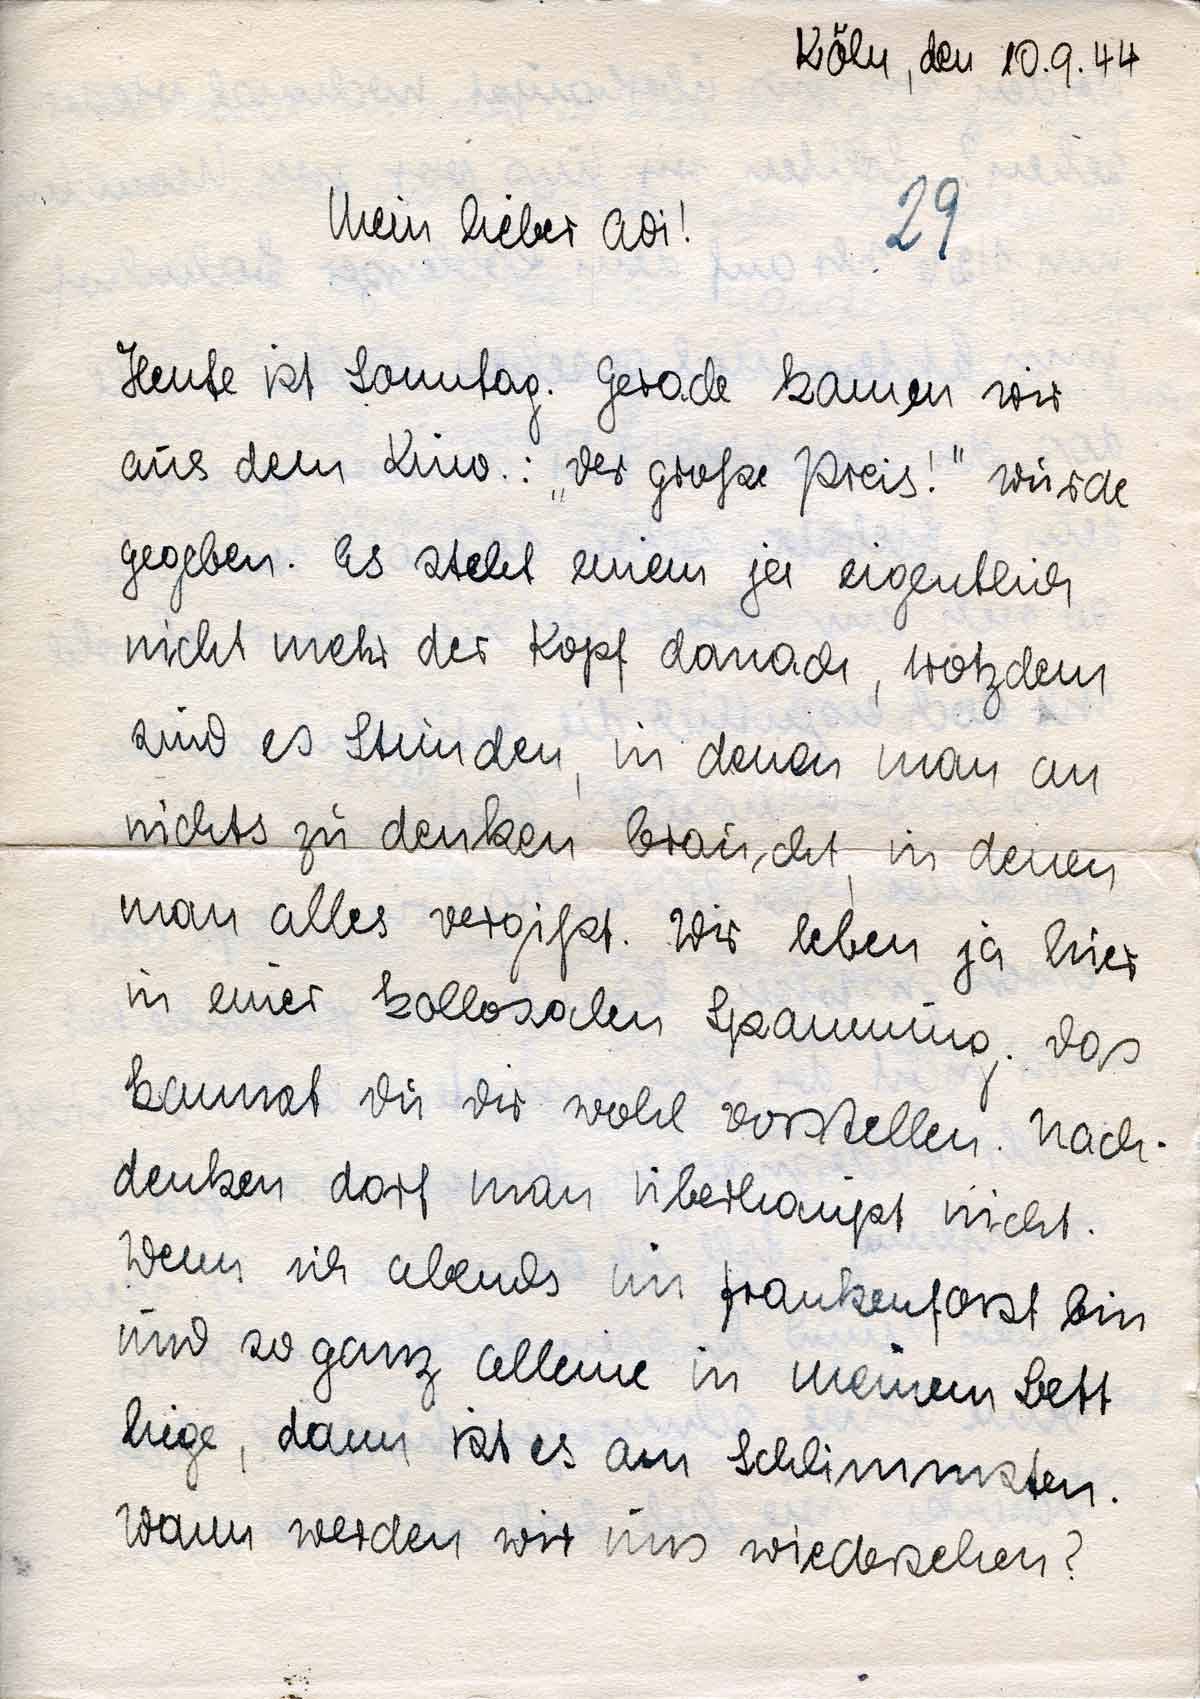 Köln, den 10.9.44
Mein lieber Adi!
29
Heute ist Sonntag. Gerade kamen wir
aus dem Kino.: „Der große Preis!" wurde
gegeben. Es steht einem ja eigentlich
nicht mehr der Kopf danach, trotzdem
sind es Stunden, in denen man an
nichts zu denken braucht, in denen
man alles vergißt. Wir leben ja hier
in einer kollosalen Spannung. Das
kannst Du Dir wohl vorstellen. Nach-
denken darf man überhaupt nicht.
Wenn ich abends in Frankenforst bin
und so ganz alleine in meinem Bett
liege, dann ist es am Schlimmsten.
Wann werden wir uns wiedersehen?